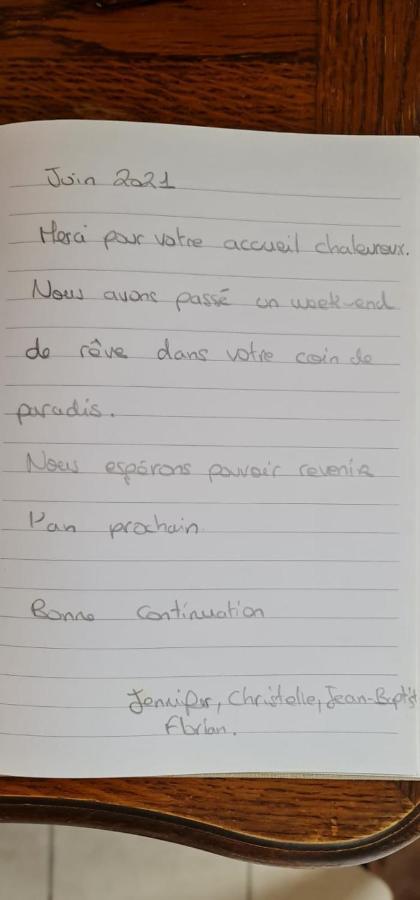 Juin 2021
Merci pour votre accueil chaleureux.
Nous avons passé un week-end
de rêve dans votre coin de
paradis.
Nous espérons pouvoir revenir
l'an prochain.
Bonne continuation
Jennifer, Christelle, Jean-Baptist
Florian.